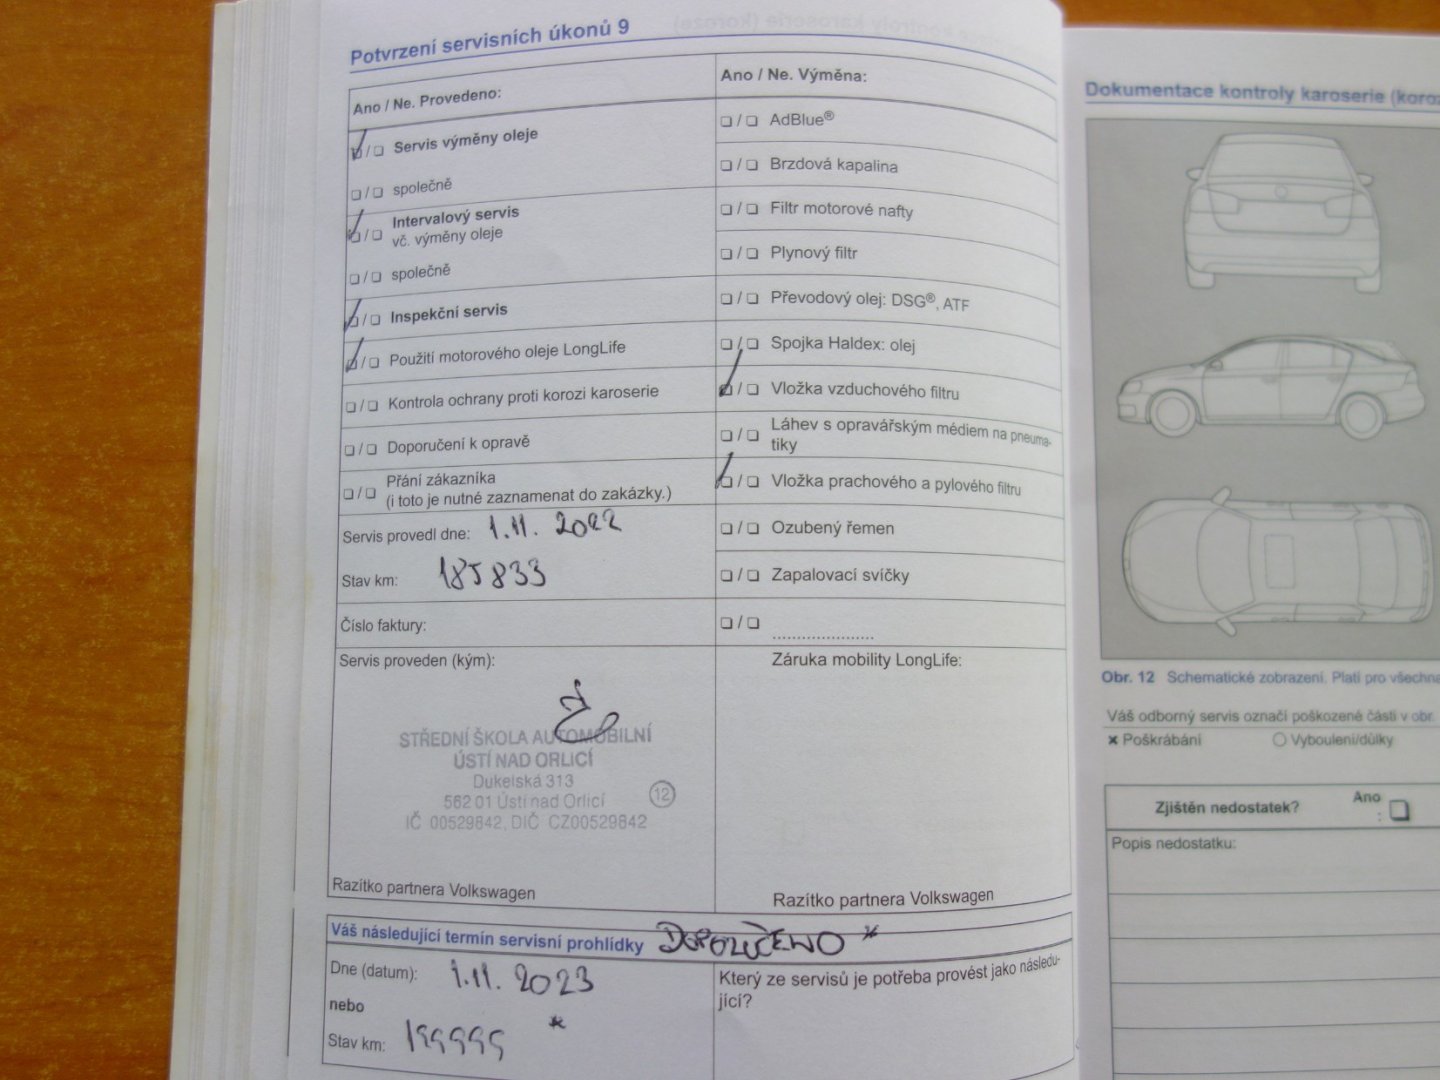 Potvrzení servisních úkonů 9
Ano / Ne. Provedeno:
Servis výměny oleje
společně
Intervalový servis
vč. výměny oleje
společně
Inspekční servis
Použití motorového oleje LongLife
Kontrola ochrany proti korozi karoserie
Doporučení k opravě
Přání zákazníka
(i toto je nutné zaznamenat do zakázky.)
Servis provedl dne: 1.11. 2022
Stav km: 185833
Číslo faktury:
Servis proveden (kým):
STŘEDNÍ ŠKOLA AUTOMOBILNÍ
ÚSTÍ NAD ORLICÍ
Dukelská 313
562 01 Ústí nad Orlicí
12
IČ 00529842, DIČ CZ00529842
Razítko partnera Volkswagen
Ano / Ne. Výměna:
AdBlue®
Brzdová kapalina
Filtr motorové nafty
Plynový filtr
Převodový olej: DSG®, ATF
Spojka Haldex: olej
Vložka vzduchového filtru
Láhev s opravářským médiem na pneuma-
tiky
Vložka prachového a pylového filtru
Ozubený řemen
Zapalovací svíčky
.....................
Záruka mobility LongLife:
Razítko partnera Volkswagen
Váš následující termín servisní prohlídky DOPORUČENO *
Dne (datum): 1.11. 2023
nebo *
Stav km: 199999
Který ze servisů je potřeba provést jako následu-
jící?
Dokumentace kontroly karoserie (koroz
Obr. 12 Schematické zobrazení. Platí pro všechna
Váš odborný servis označí poškozené části v obr.
× Poškrábání ○ Vyboulení/důlky
Zjištěn nedostatek? Ano
:
Popis nedostatku: